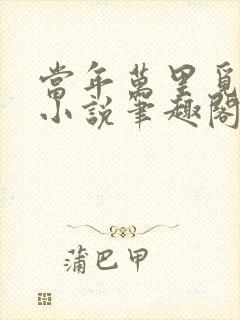 當年萬里覓
小説筆趣閣
蒲巴甲